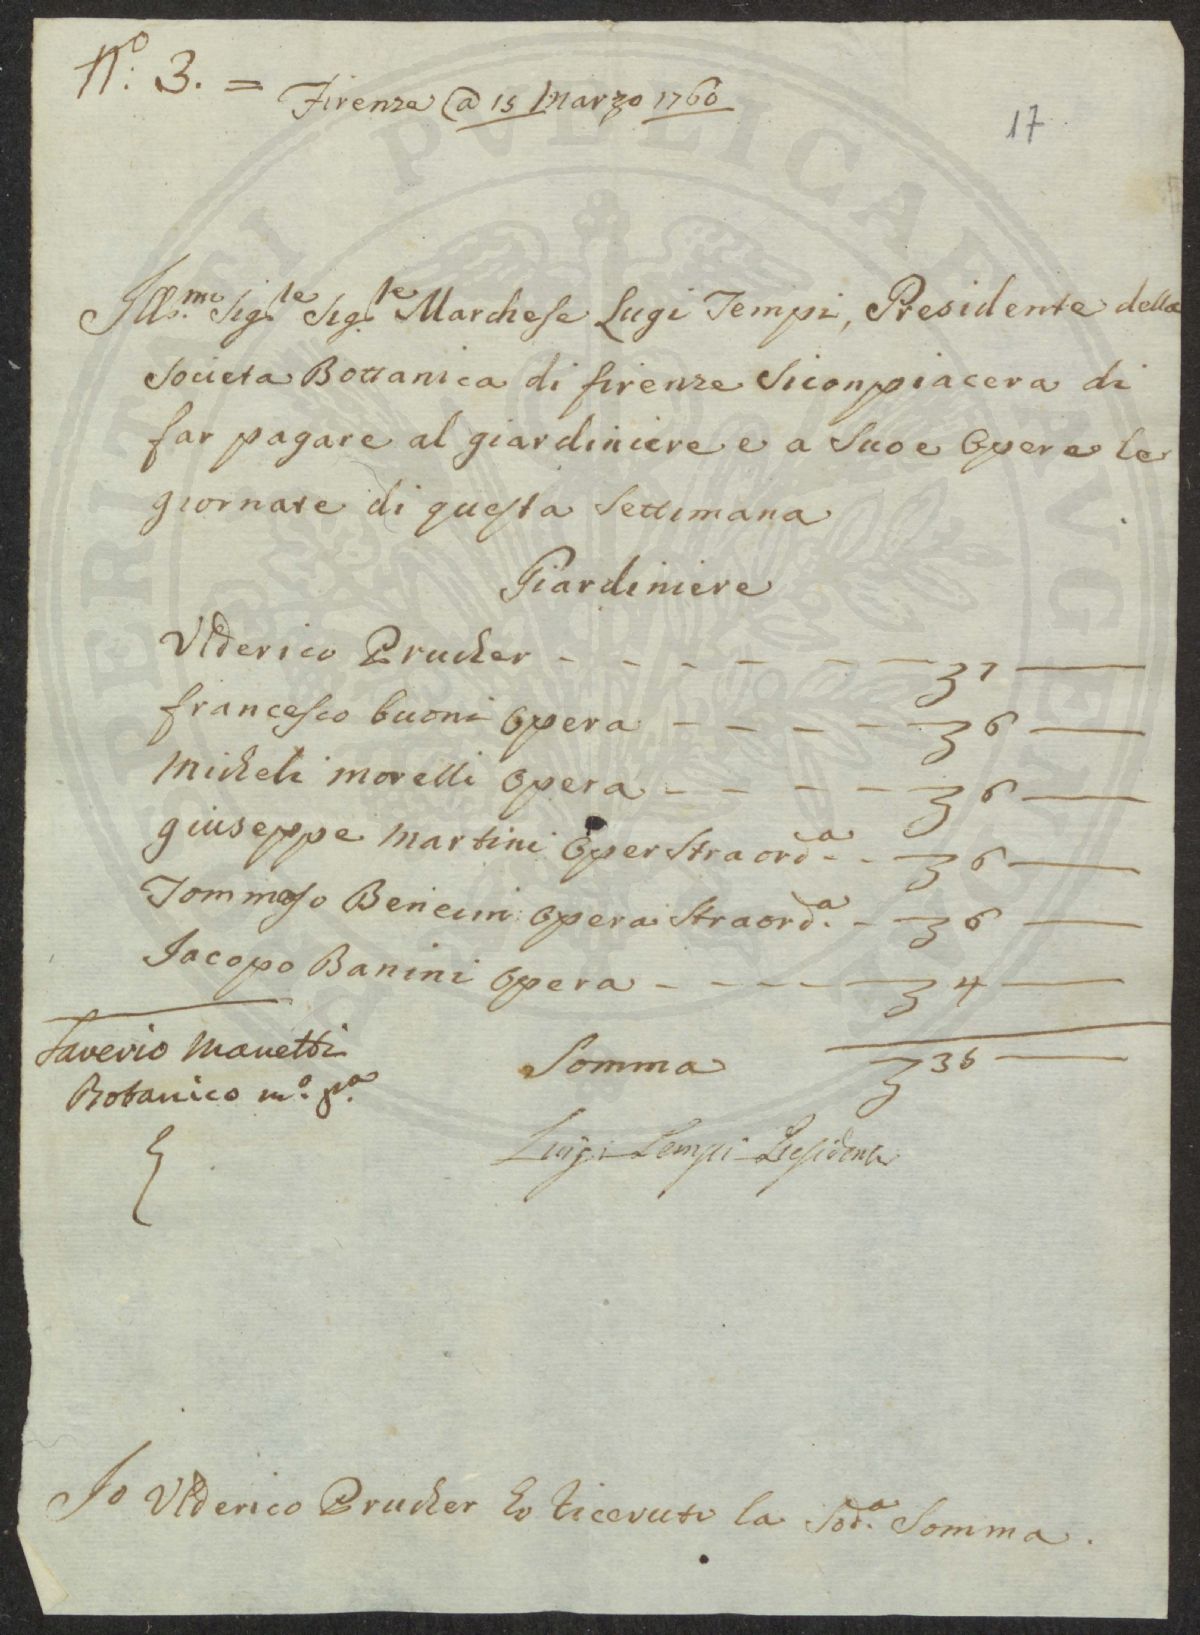 Nº. 3. =
Firenze @ 15 Marzo 1760
17
Ill:mo Sig:re Sig:re Marchese Lugi Tempi, Presidente della
Societa Bottanica di firenze Siconpiacera di
far pagare al giardiniere e a Suoe Opere le
giornate di questa Settimana
Giardiniere
Ulderico Prucker - - - - - - 7 —
francesco buoni Opera - - - - 6 —
Micheli morelli Opera - - - - 6 —
giuseppe Martini Oper Straord.a - - 6 —
Tommaso Benecini Opera Straord.a - 6 —
Jacopo Banini Opera - - - - 4 —
Saverio Manetti
Botanico m.o p.a
Somma 35 —
Luigi Tempi Presidente
Io Ulderico Prucker ho riceuto la Sod.a Somma.